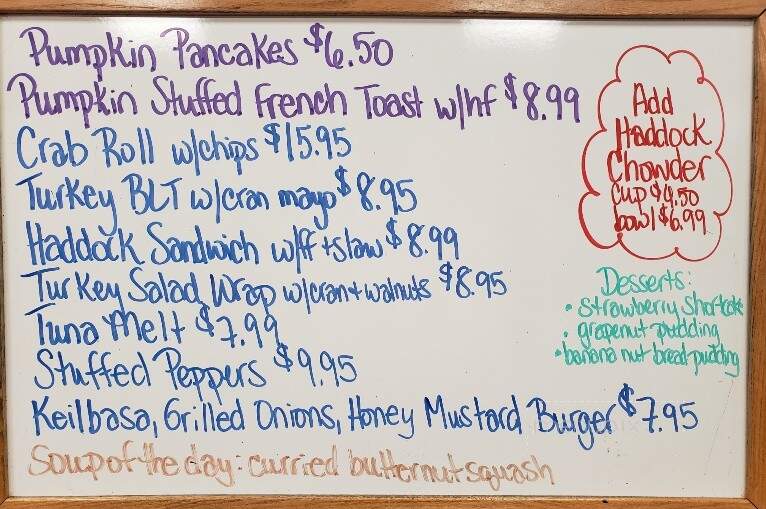 Pumpkin Pancakes $6.50
Pumpkin Stuffed French Toast w/hf $8.99
Crab Roll w/chips $15.95
Turkey BLT w/cran mayo $8.95
Haddock Sandwich w/ff + slaw $8.99
Turkey Salad Wrap w/cran + walnuts $8.95
Tuna Melt $7.99
Stuffed Peppers $9.95
Keilbasa, Grilled Onions, Honey Mustard Burger $7.95
Soup of the day: curried butternut squash
Add
Haddock
Chowder
cup $4.50
bowl $6.99
Desserts:
• strawberry shortcake
• grapenut pudding
• banana nut bread pudding